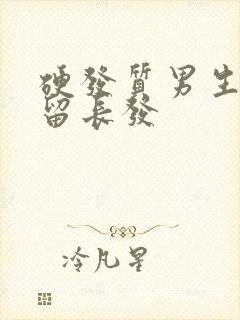 硬發質男生
留長發
冷凡星